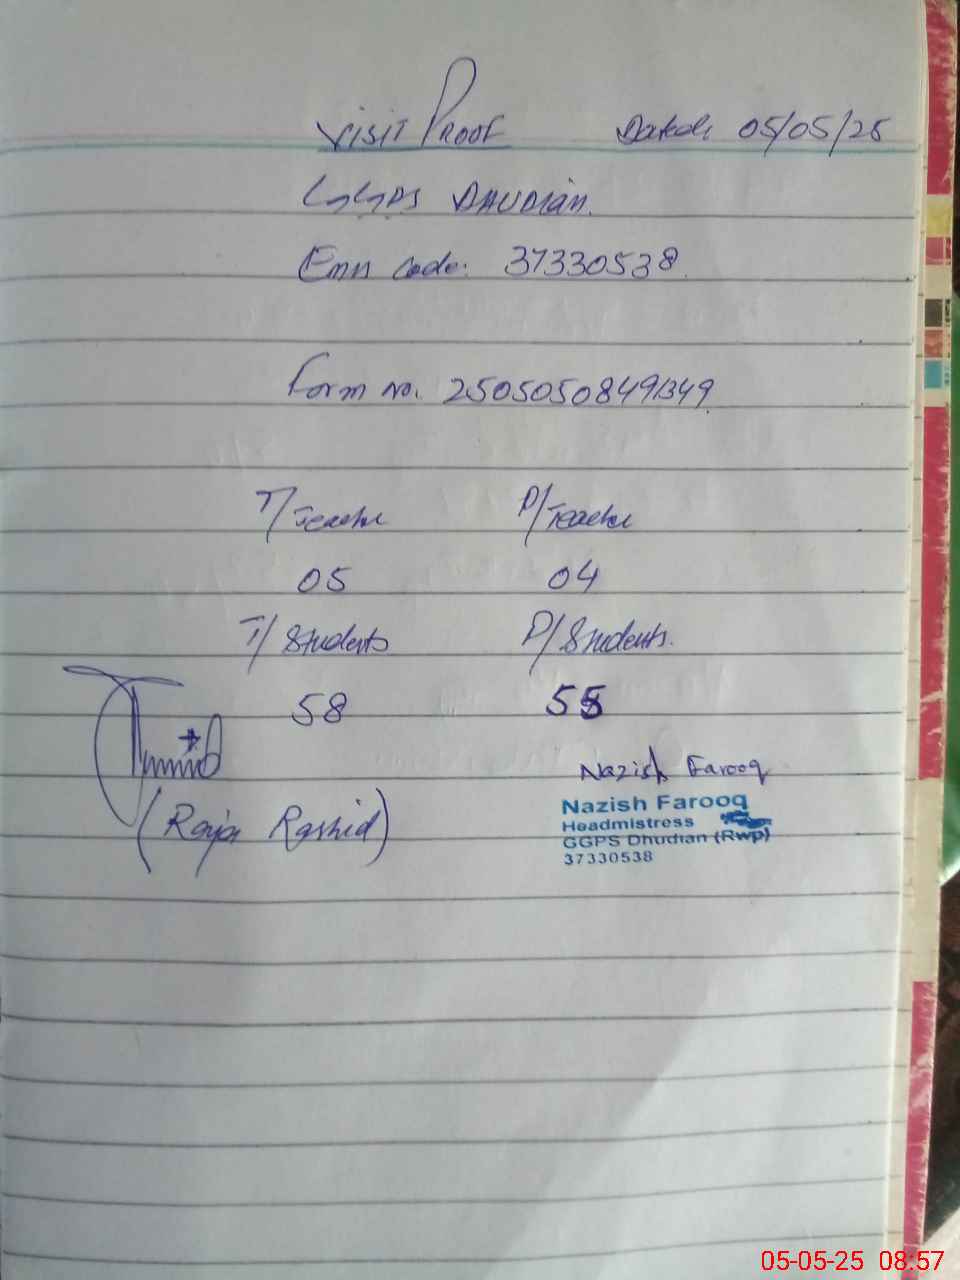 Visit Proof Dated: 05/05/25
GGPS DHUDIAN.
Emis Code: 37330538
Form No. 25050508491349
T/Teacher P/Teacher
05 04
T/Students P/Students.
58 55
Nazish Farooq
(Raja Rashid)
Nazish Farooq
Headmistress
GGPS Dhudian (Rwp)
37330538
05-05-25 08:57